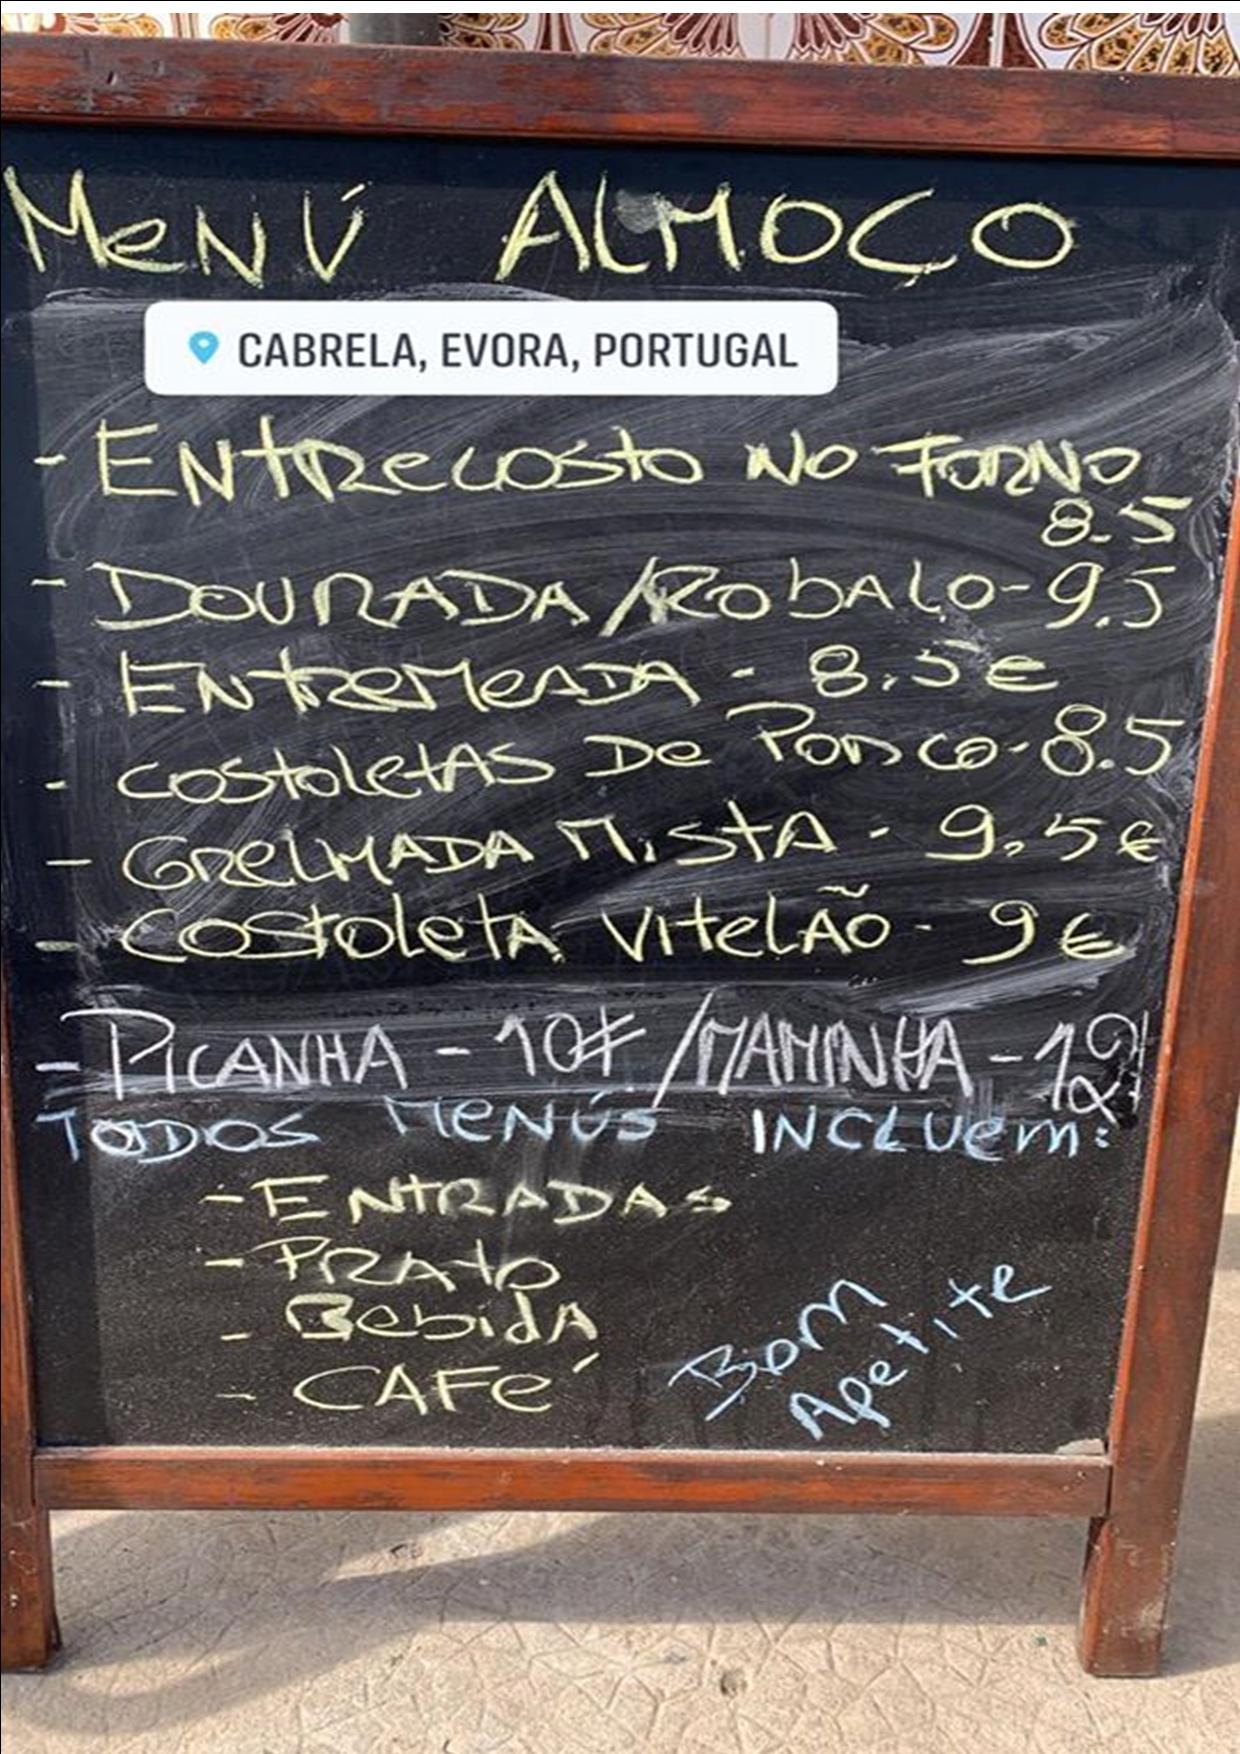 MeNÚ ALMOÇO
CABRELA, EVORA, PORTUGAL
- ENtRecosto NO FORNO
8.5
- DOURADA/RobALO-9.5
- ENtReMeADA - 8.5€
- COStoletAS De PoRco-8.5
- GRelHADA MistA - 9,5€
- COStoletA VitelÃO - 9€
- PICANHA - 10€ /MAMINHA - 12
TODOS MeNÚS INCLUem:
- ENtRADAS
- PRAto
- BebidA
- CAFé
Bom
Apetite